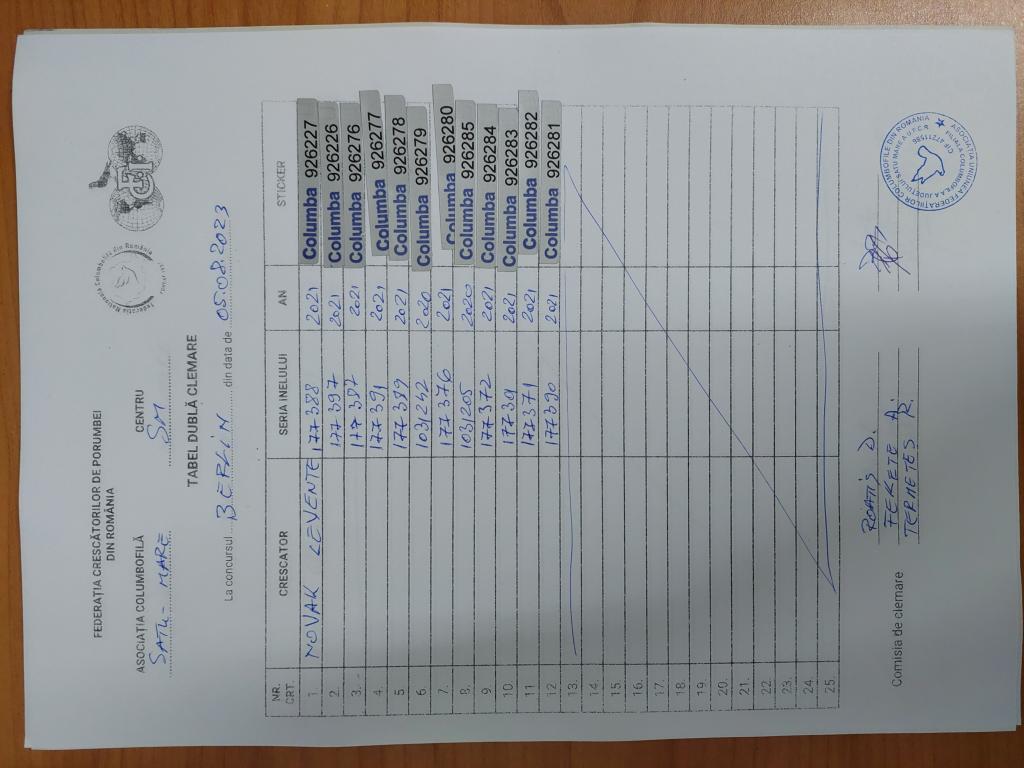 FEDERAȚIA CRESCĂTORILOR DE PORUMBEI
DIN ROMÂNIA
Federația Națională Columbofilă din România
FCI
ASOCIAȚIA COLUMBOFILĂ CENTRU
SATU-MARE SM
TABEL DUBLĂ CLEMARE
La concursul BERLIN din data de 05.08.2023
NR. CRT. CRESCATOR SERIA INELULUI AN STICKER
1. NOVAK LEVENTE 177388 2021 Columba 926227
2. 177397 2021 Columba 926226
3. 177387 2021 Columba 926276
4. 177391 2021 Columba 926277
5 177389 2021 Columba 926278
6. 1031242 2020 Columba 926279
7. 177376 2021 Columba 926280
8. 1031205 2020 Columba 926285
9. 177372 2021 Columba 926284
10. 2021 Columba 926283
11 177371 2021 Columba 926282
12 177390 2021 Columba 926281
13.
14.
15.
16.
17.
18.
19.
20.
21.
22.
23.
24.
25.
Comisia de clemare
ROATIȘ D.
FEKETE A.
TERMETES R.
ASOCIAȚIA UNIUNEA FEDERAȚIILOR COLUMBOFILE DIN ROMÂNIA
FILIALA COLUMBOFILA A JUDEȚULUI SATU MARE A U.F.C.R.